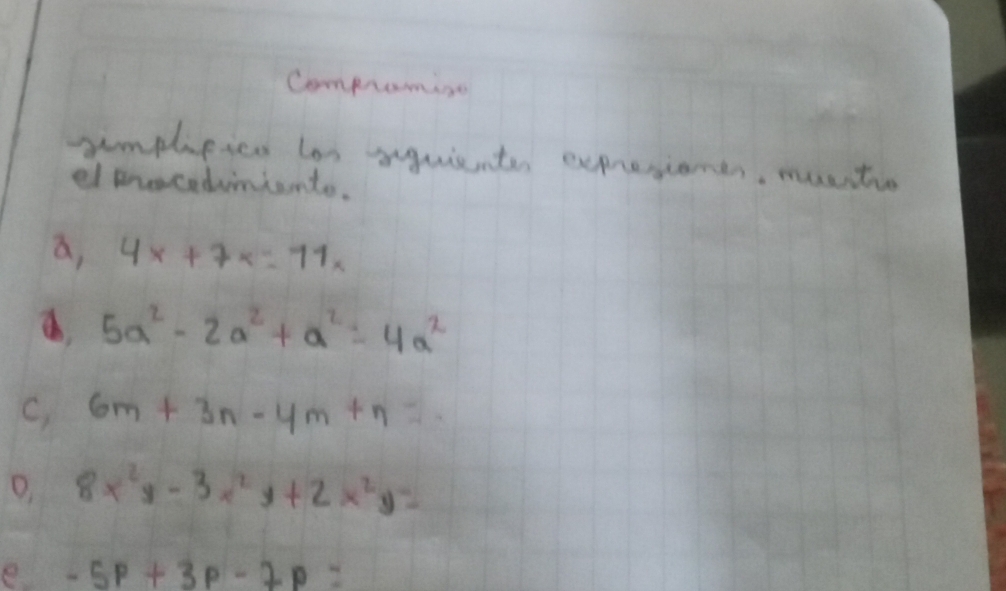 Compromiso
simplifico los siguientes expresiones. muestro
el procedimiento.
a, 4x + 7x = 11x
b, 5a² - 2a² + a² = 4a²
c, 6m + 3n - 4m + n =
D, 8x²y - 3x²y + 2x²y =
e - 5p + 3p - 7p =